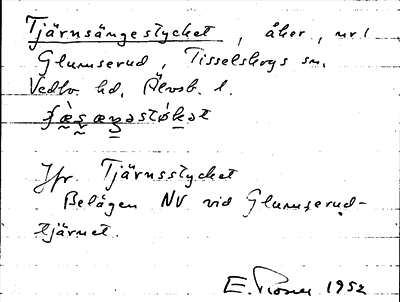 Tjärnsängestycket, åker, nr 1
Glumserud, Tisselskogs sn,
Vedbo hd, Älvsb. l.
Jfr. Tjärnsstycket
Belägen NV vid Glumserud-
tjärnet.
E. 1952